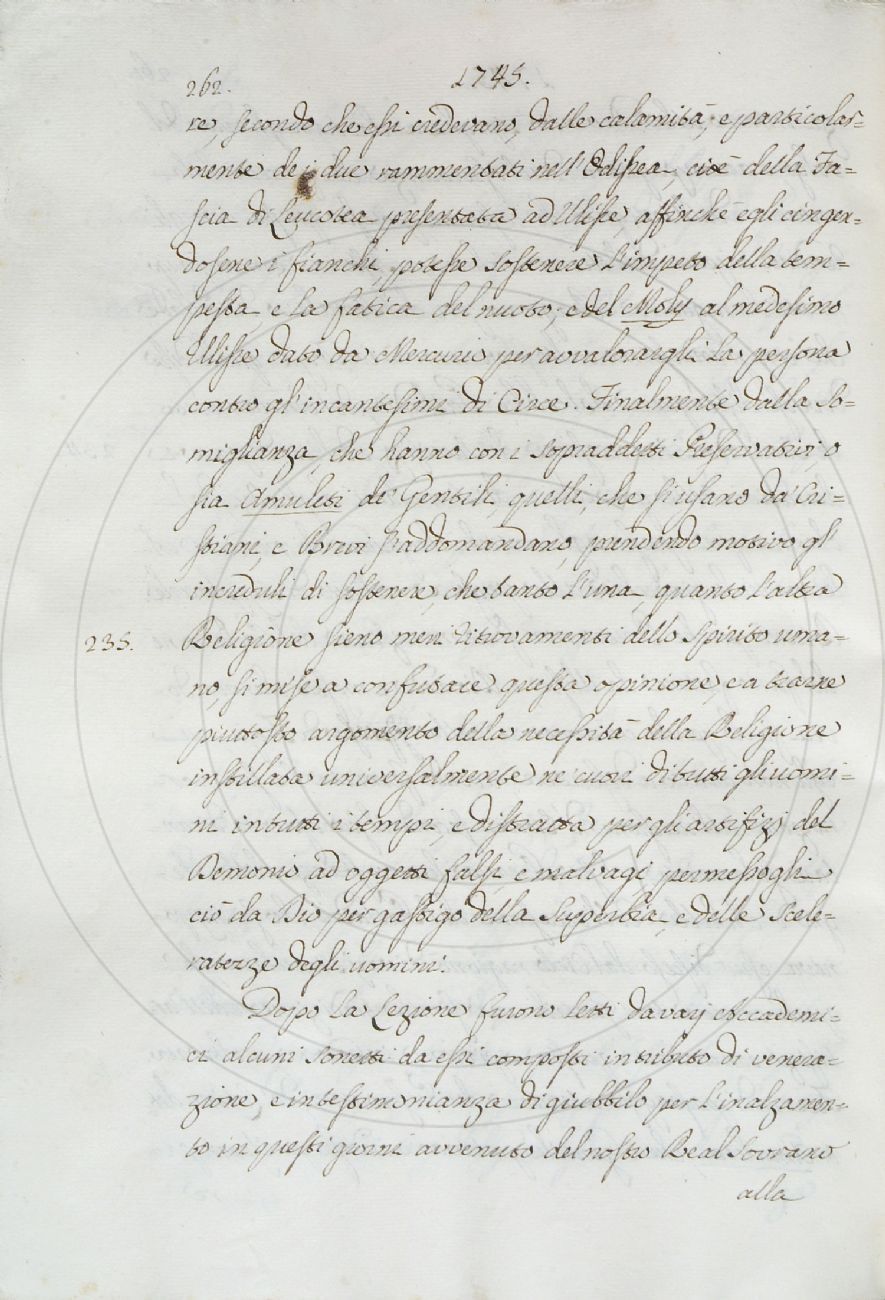 262.
1745.
re, secondo che essi credevano, dalle calamità, e particolar=
mente dei due rammentati nell'Odissea, cioè della Fa=
scia di Leucotea presentata ad Ulisse, affinchè egli cinger=
dosene i fianchi, potesse sostenere l'impeto della tem=
pesta, e la fatica del nuoto, e del Moly al medesimo
Ulisse dato da Mercurio per avvalorargli la persona
contro gl'incantesimi di Circe. Finalmente dalla so=
miglianza, che hanno con i sopraddetti Preservativi, o
sia Amuleti de' Gentili, quelli, che si usano da' Cri=
stiani, e Brevi s'addomandano, prendendo motivo gl'
increduli di sostenere, che tanto l'una, quanto l'altra
235.
Religione sieno meri ritrovamenti dello spirito uma=
no, si mise a confutare questa opinione, e a trarre
piuttosto argomento della necessità della Religione
instillata universalmente ne' cuori di tutti gli uomi=
ni in tutti i tempi, e distratta per gli artifizj del
Demonio ad oggetti falsi, e malvagi, permessogli
ciò da Dio per gastigo della superbia, e delle scele=
ratezze degli uomini.
Dopo la Lezione furono letti da varj Accademi=
ci alcuni sonetti da essi composti in tributo di venera=
zione, e in testimonianza di giubbilo per l'inalzamen=
to in questi giorni avvenuto del nostro Real Sovrano
alla